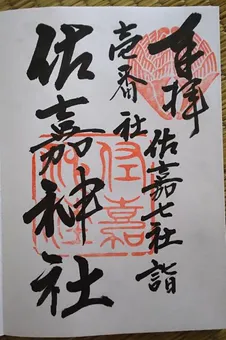 奉拜
佐嘉七社詣
壱番社
佐嘉神社
佐嘉
神社